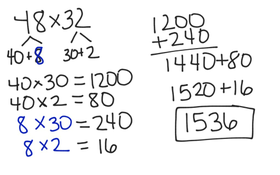 48×32
40+8 30+2
40×30=1200
40×2=80
8×30=240
8×2=16
1200
+240
1440+80
1520+16
1536